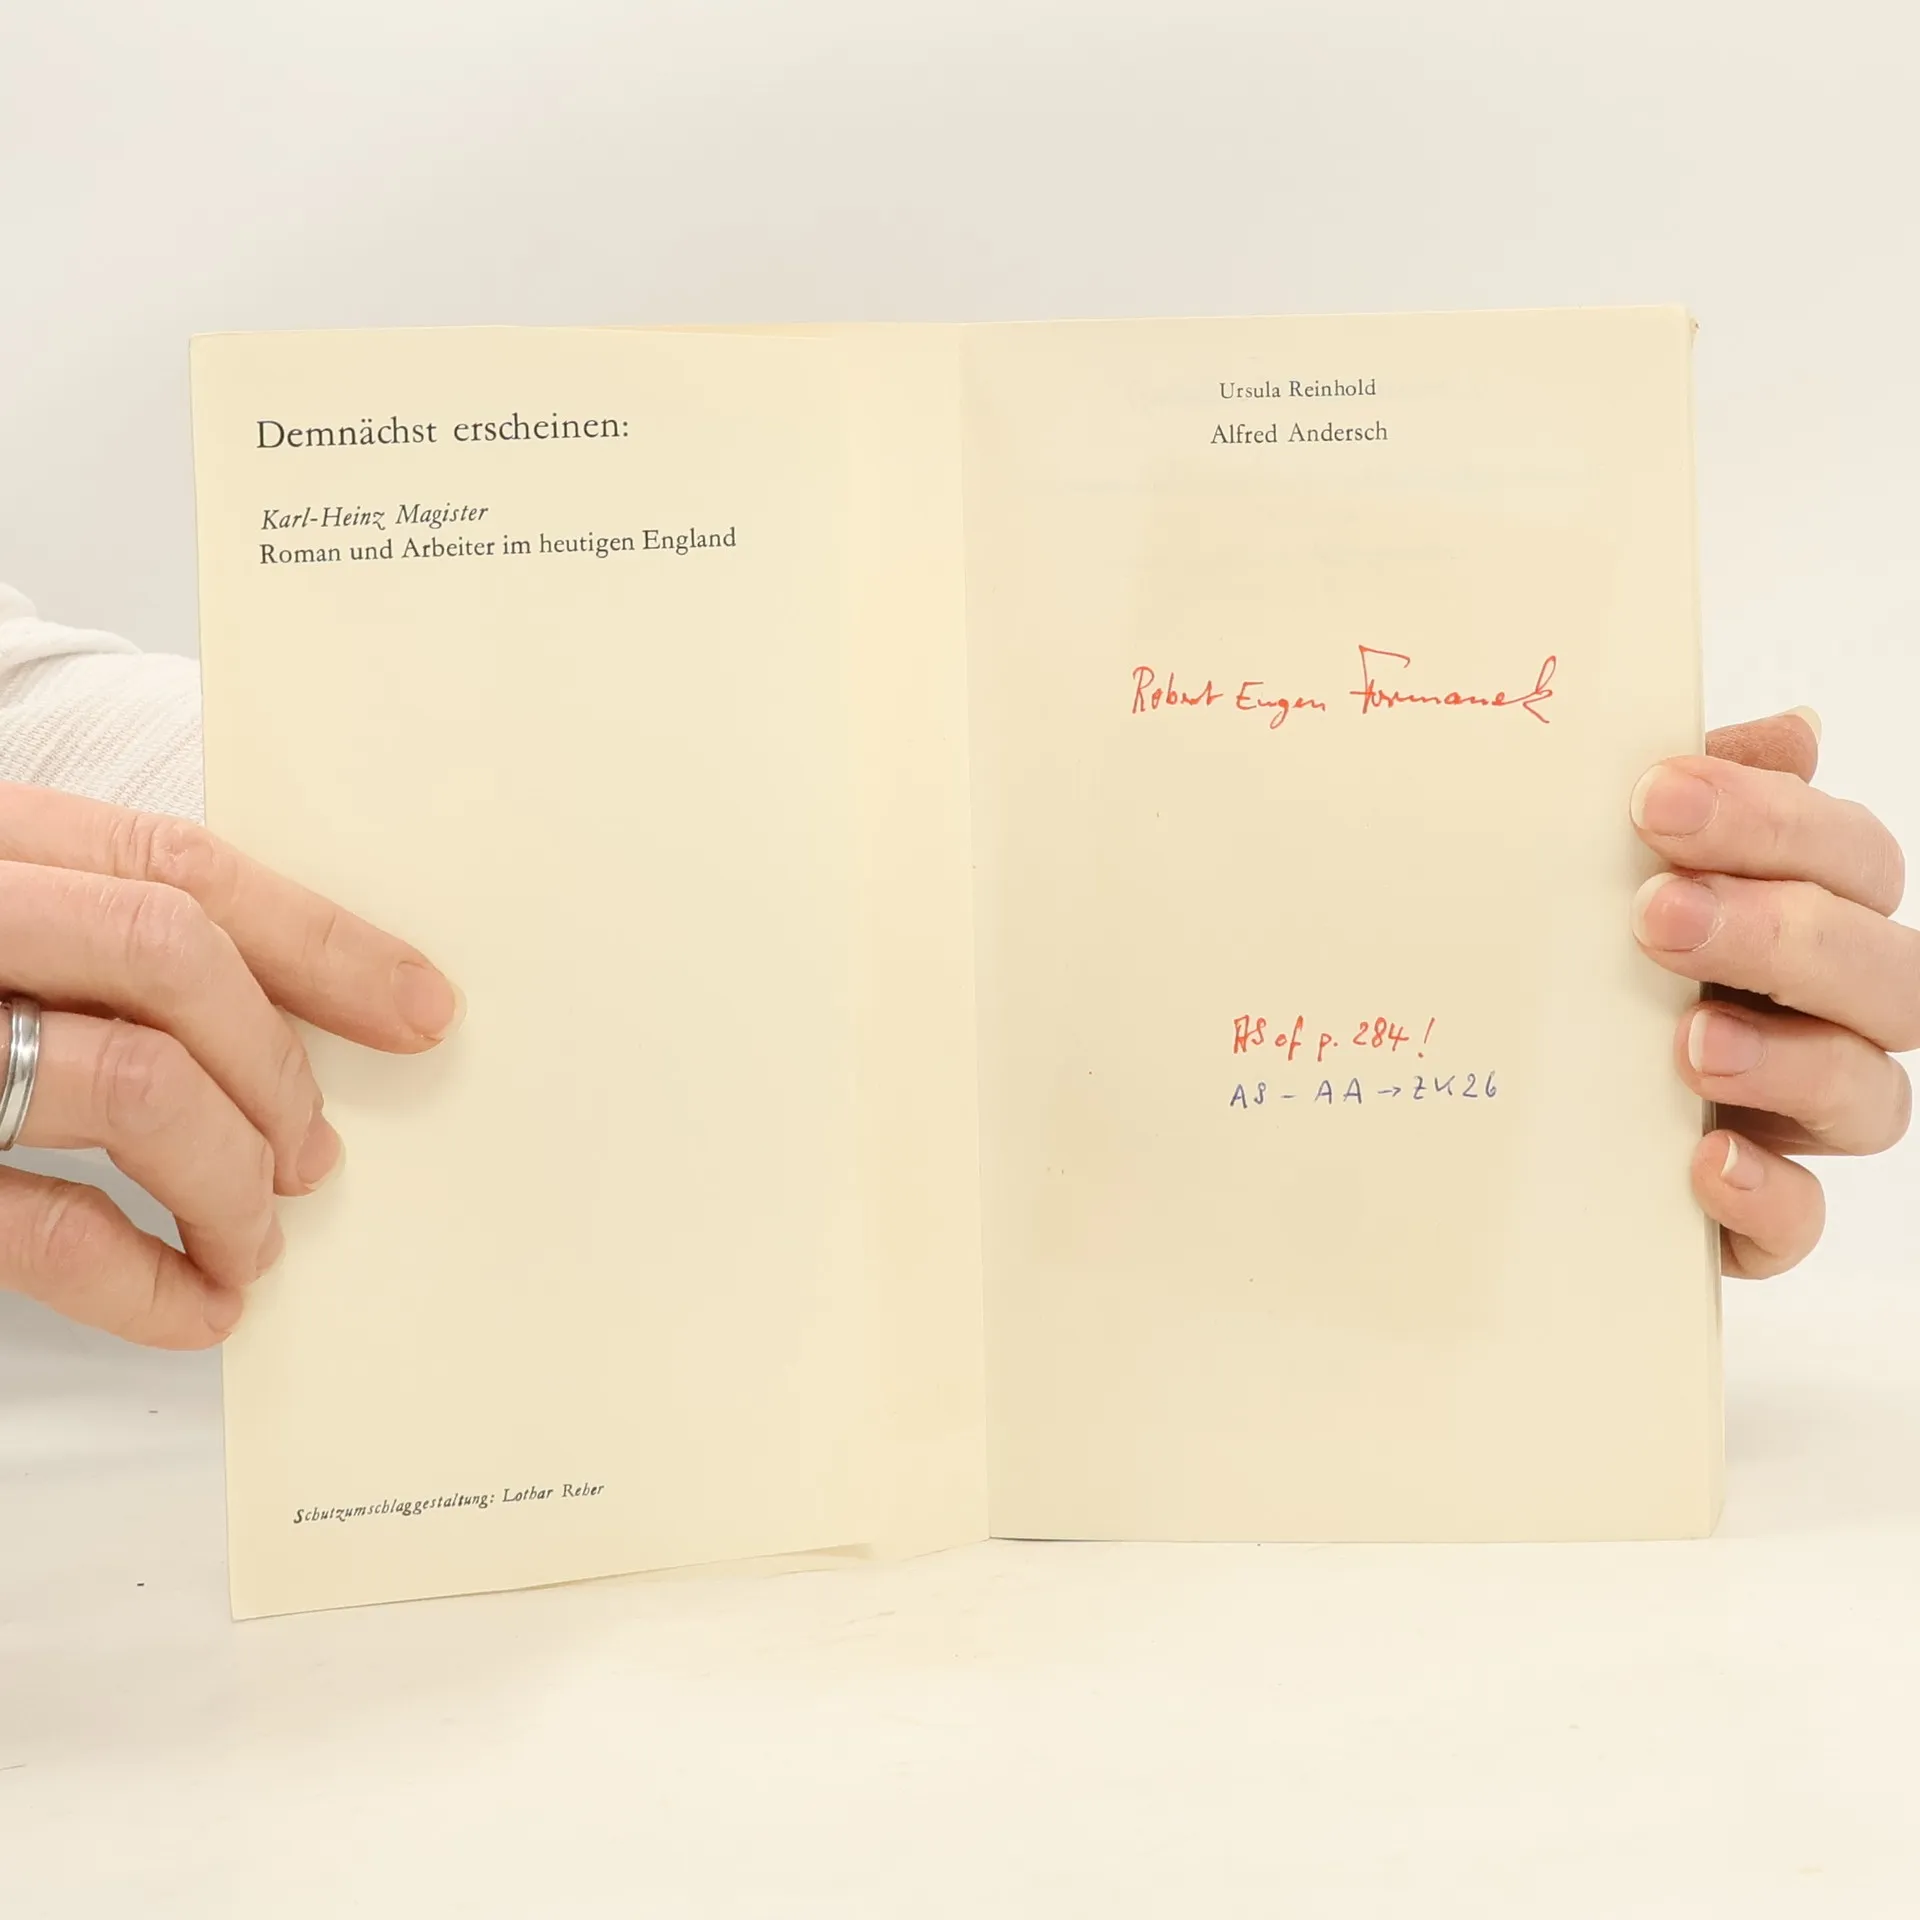 Demnächst erscheinen:
Karl-Heinz Magister
Roman und Arbeiter im heutigen England
Schutzumschlaggestaltung: Lothar Reber
Ursula Reinhold
Alfred Andersch
Robert Eugen Formanek
AS of p. 284!
AS - AA → ZK26